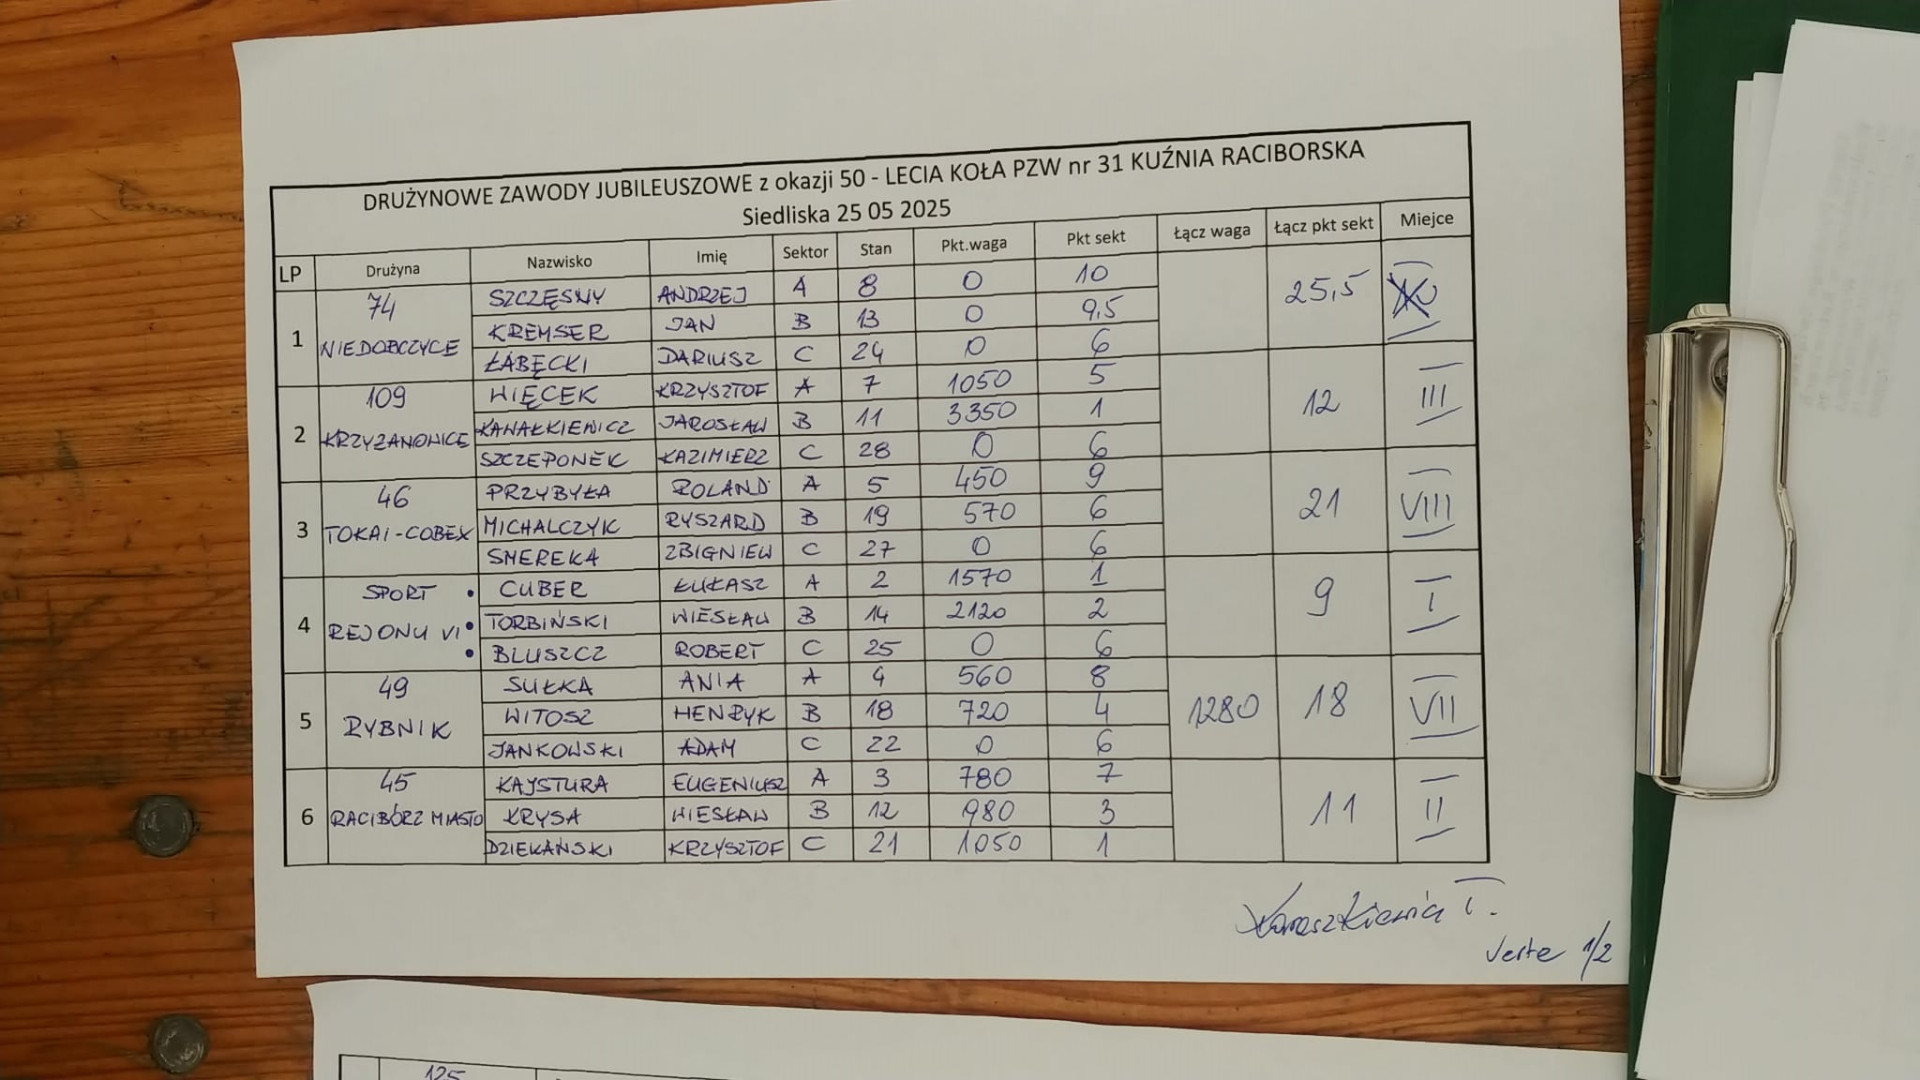 DRUŻYNOWE ZAWODY JUBILEUSZOWE z okazji 50 - LECIA KOŁA PZW nr 31 KUŹNIA RACIBORSKA
Siedliska 25 05 2025
LP Drużyna Nazwisko Imię Sektor Stan Pkt.waga Pkt sekt Łącz waga Łącz pkt sekt Miejce
1 74 NIEDOBCZYCE SZCZĘSNY ANDRZEJ A 8 0 10 25,5
KREMSER JAN B 13 0 9,5
ŁABĘCKI DARIUSZ C 24 0 6
2 109 KRZYŻANOWICE WIĘCEK KRZYSZTOF A 7 1050 5 12 III
KANAŁKIEWICZ JAROSŁAW B 11 3350 1
SZCZEPONEK KAZIMIERZ C 28 0 6
3 46 TOKAI-COBEX PRZYBYŁA ROLAND A 5 450 9 21 VIII
MICHALCZYK RYSZARD B 19 570 6
SMEREKA ZBIGNIEW C 27 0 6
4 SPORT REJONU VI CUBER ŁUKASZ A 2 1570 1 9 I
TORBIŃSKI WIESŁAW B 14 2120 2
BLUSZCZ ROBERT C 25 0 6
5 49 RYBNIK SUŁKA ANIA A 4 560 8 1280 18 VII
WITOSZ HENRYK B 18 720 4
JANKOWSKI ADAM C 22 0 6
6 45 RACIBÓRZ MIASTO KAJSTURA EUGENIUSZ A 3 780 7 11 II
KRYSA WIESŁAW B 12 980 3
DZIEKAŃSKI KRZYSZTOF C 21 1050 1
Verte 1/2
125